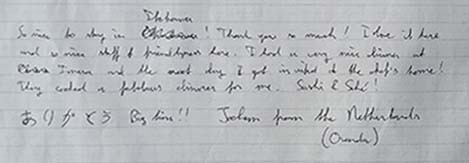 So nice to stay in ! Thank you so much! I love it here
and so nice staff & friendlyness here. I had a very nice dinner at
and the next day I got invited at the chef's home!
They cooked a fabulous dinner for me. Sushi & Saké!
ありがとう Big kiss!! Jochem from the Netherlands